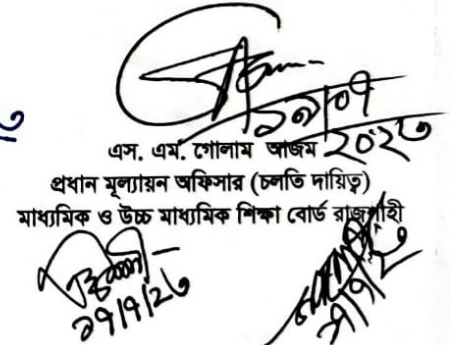 ২৭/০৭
২০২৩
এস. এম. গোলাম আজম
প্রধান মূল্যায়ন অফিসার (চলতি দায়িত্ব)
মাধ্যমিক ও উচ্চ মাধ্যমিক শিক্ষা বোর্ড রাজশাহী
২৭/৭/২৩